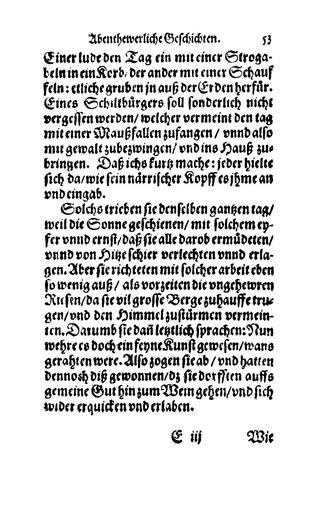 Abenthewerliche Geschichten. 53
Einer lude den Tag ein mit einer Stroga-
beln in ein Korb/ der ander mit einer Schauf
feln: etliche gruben jn auß der Erden herfür.
Eines Schiltbürgers soll sonderlich nicht
vergessen werden/ welcher vermeint den tag
mit einer Maußfallen zufangen/ vnnd also
mit gewalt zubezwingen/ vnd ins Hauß zu-
bringen. Daß ichs kurtz mache: jeder hielte
sich da/ wie sein närrischer Kopff es jhme an
vnd eingab.
Solchs trieben sie denselben gantzen tag/
weil die Sonne geschienen/ mit solchem ey-
fer vnnd ernst/ daß sie alle darob ermüdeten/
vnnd von Hitze schier verlechten vnnd erla-
gen. Aber sie richteten mit solcher arbeit eben
so wenig auß/ als vorzeiten die vngehewren
Riesen/ da sie vil grosse Berge zuhauffe tru-
gen/ vnd den Himmel zustürmen vermein-
ten. Darumb sie dañ letztlich sprachen: Nun
wehre es doch ein feyne Kunst gewesen/ wans
gerahten were. Also zogen sie ab/ vnd hatten
dennoch diß gewonnen/ dz sie dorfften auffs
gemeine Gut hin zum Wein gehen/ vnd sich
wider erquicken vnd erlaben.
E iij Wie